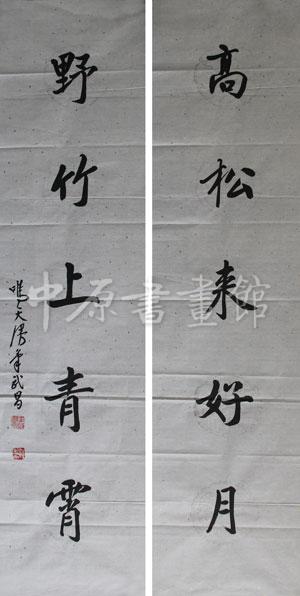 高松来好月
野竹上青霄
中原書畫館